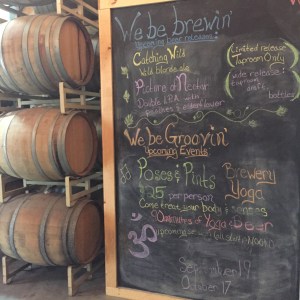 We be brewin'
Upcoming beer releases
Catching Wild
wild blonde ale
Nectar
Double IPA with
flower
Limited release
Taproom Only
release
draft
bottles
We be Groovin'
Upcoming Events
Poses & Pints
Brewery
Yoga
$25 per person
Come treat your body & senses
Yoga & beer
September
October 17